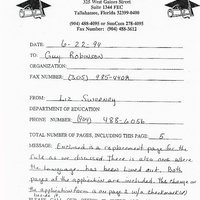 325 West Gaines Street
Suite 1344 FEC
Tallahassee, Florida 32399-0400
(904) 488-4095 or SunCom 278-4095
Fax Number: (904) 488-3612
DATE: 6-22-94
TO: Guy Robinson
ORGANIZATION:
FAX NUMBER: (305) 985-4409
FROM: Liz Sweeney
DEPARTMENT OF EDUCATION
PHONE NUMBER: (904) 488-6056
TOTAL NUMBER OF PAGES, INCLUDING THIS PAGE: 5
MESSAGE: Enclosed is a replacement page for the
rule as we discussed. There is also one where
the language has been lined out. Both
pages of the application are included. The change on
the application form is on page 2 w/a checkmark(✓)
beside it.